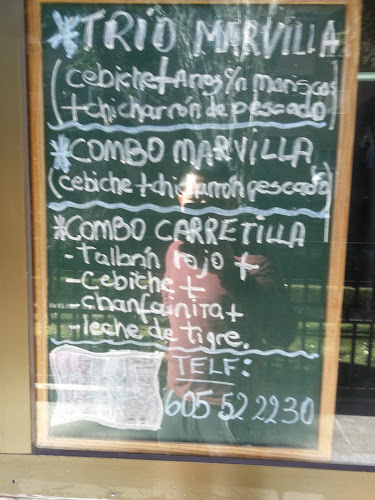 *TRIO MARVILLA
(cebiche + Arros /n mariscos
+ chicharrón de pescado)
*COMBO MARVILLA
(cebiche + chicharrón pescado)
*COMBO CARRETILLA
- Tallarin rojo +
- Cebiche +
- chanfainita +
- leche de tigre.
TELF:
605 52 22 30